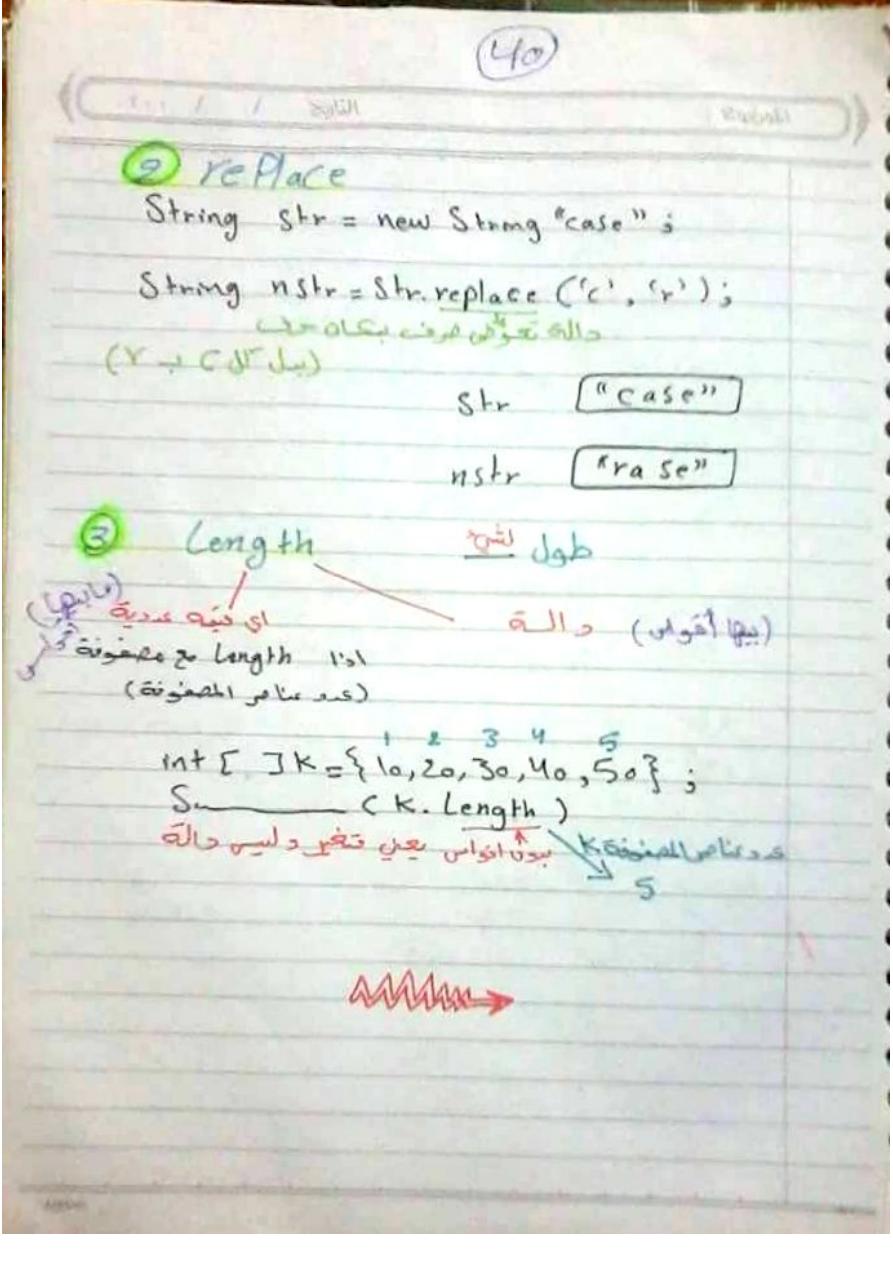 40
التاريخ / /
② replace
String str = new String "case" ;
String nstr = Str.replace ('c', 'r') ;
دالة تعوض حرف بمكان حرف
(يبدل كل c بـ r)
str "case"
nstr "rase"
③ Length طول لشيء
دالة (بيها أقواس)
اي قيمة عددية (مابيها أقواس)
اذا Length مع مصفوفة
(عدد عناصر المصفوفة)
1 2 3 4 5
int [ ] K = {10,20,30,40,50} ;
S______ (K.Length)
بدون اقواس يعني متغير وليس دالة
عدد عناصر المصفوفة K
5